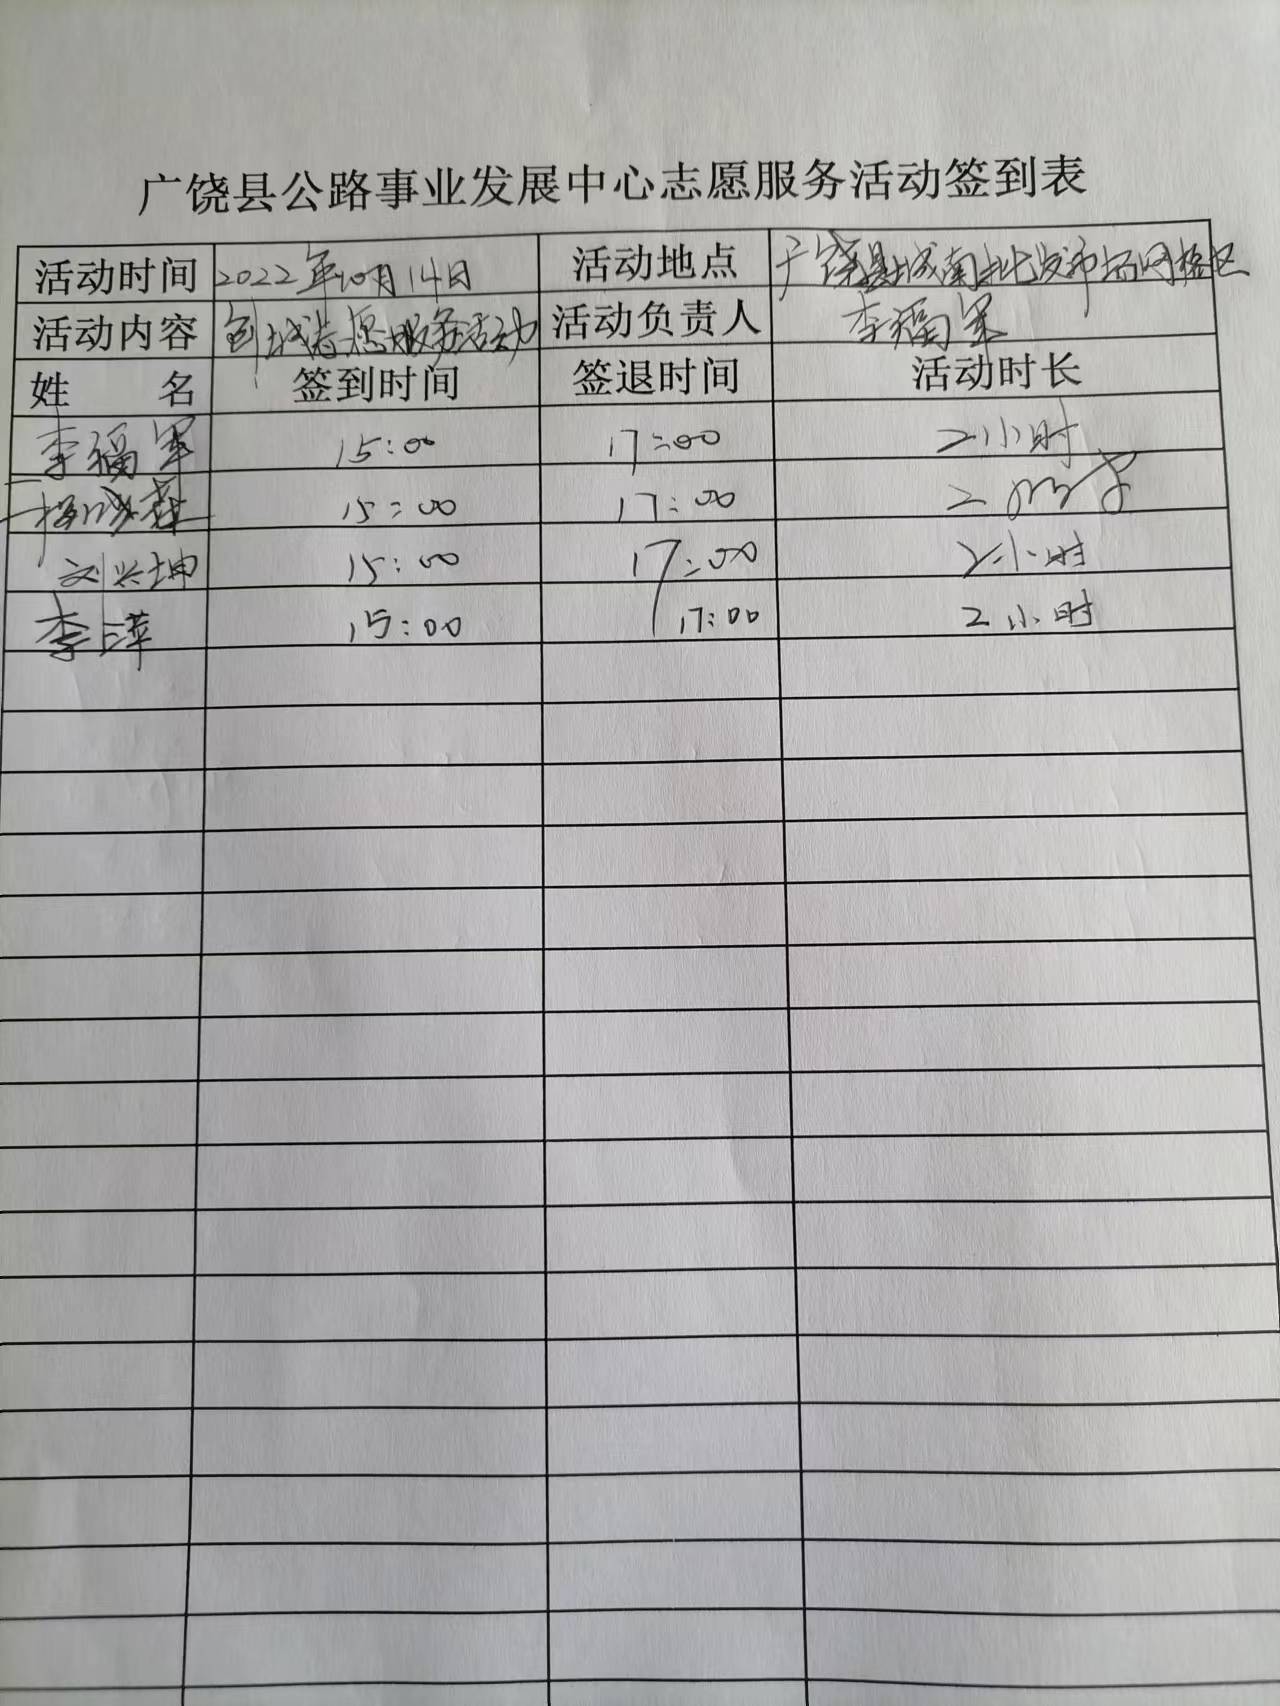 广饶县公路事业发展中心志愿服务活动签到表
活动时间 2022年10月14日 活动地点 广饶县城南批发市场网格区
活动内容 创城志愿服务活动 活动负责人 李福军
姓 名 签到时间 签退时间 活动时长
李福军 15:00 17:00 2小时
15:00 17:00 2小时
刘兴坤 15:00 17:00 2小时
李萍 15:00 17:00 2小时